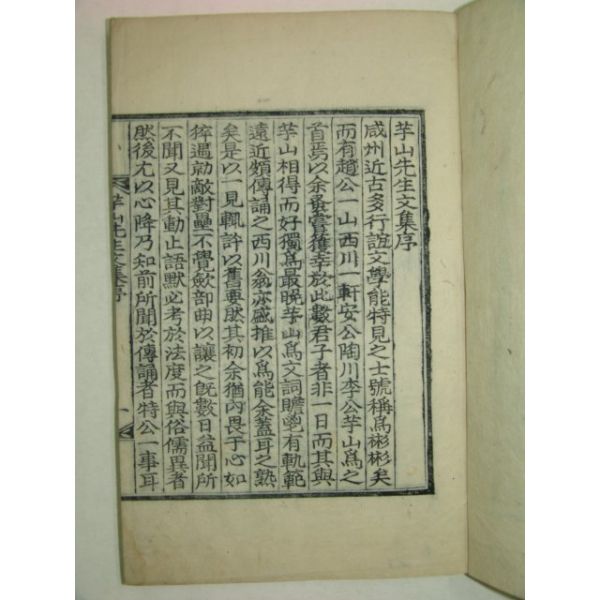 芋山先生文集序
咸州近古多行誼文學能特見之士號稱爲彬彬矣
而有趙公一山西川一軒安公陶川李公芋山爲之
首焉以余嘗獲幸於此數君子者非一日而其與
芋山相得而好獨爲最晩芋山爲文詞贍鬯有軌範
遠近頗傳誦之西川翁亦盛推以爲能余蓋耳之熟
矣是以一見輒許以舊要然其初余猶內畏于心如
猝遇勍敵對壘不覺斂部曲以讓之旣數日益聞所
不聞又見其動止語默必考於法度而與俗儒異者
然後尤以心降乃知前所聞於傳誦者特公一事耳
芋山先生文集序
一